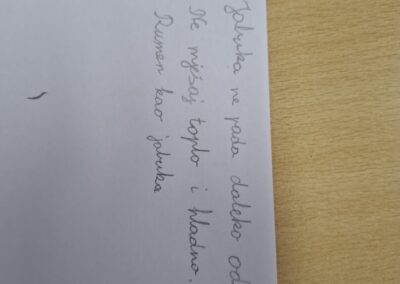 Jabuka ne pada daleko od
Ne mješaj toplo i hladno.
Rumen kao jabuka